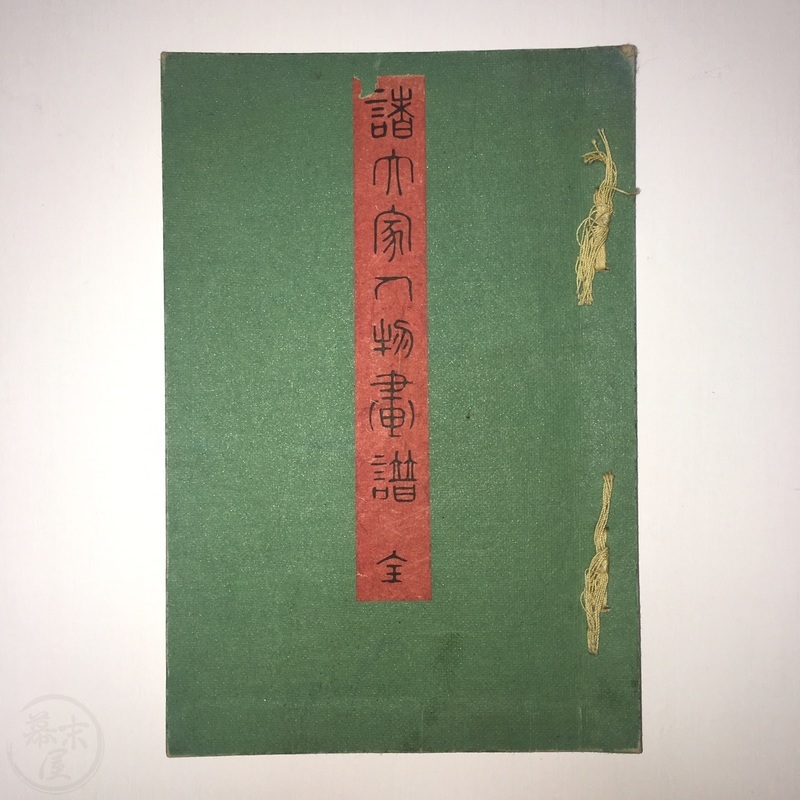 諸大家人物畫譜 全
幕末屋